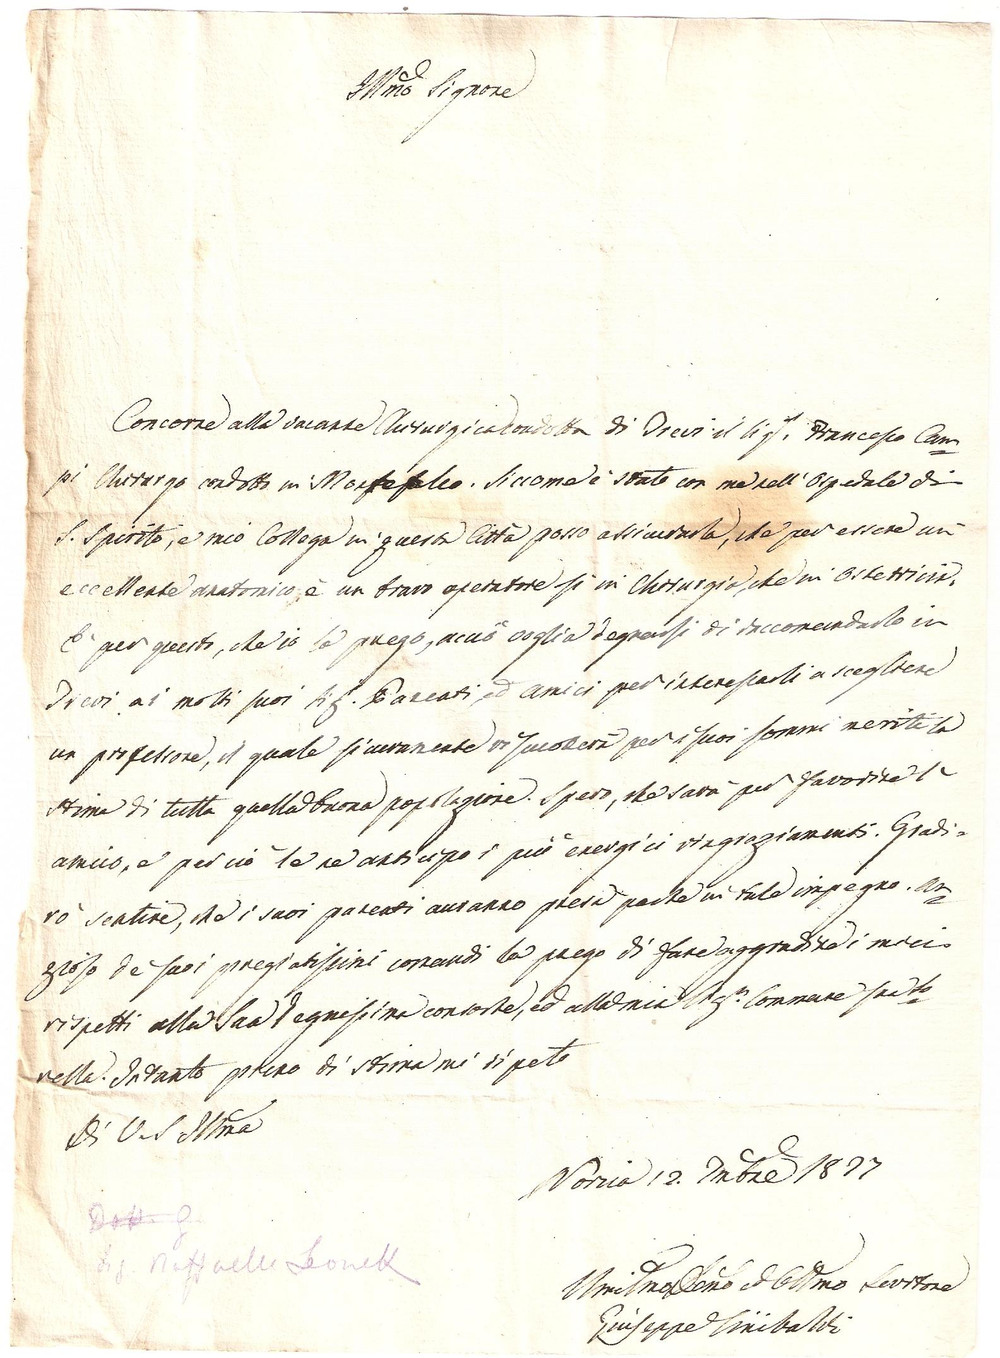 Illmo Signore
Concorre alla vacante Chirurgica Condotta di Trevi il Sigr. Francesco Cam=
pi Chirurgo condotto in Montefalco. Siccome è stato con me nell'Ospedale di
S. Spirito, e mio Collega in questa Città posso assicurarla, che per essere un
eccellente anatomico, è un bravo operatore sì in Chirurgia, che in Ostetricia.
E' per questo, che io la prego, acciò voglia degnarsi di raccomandarlo in
Trevi ai molti suoi Sig. Parenti, ed amici per interessarli a scegliere
un professore, il quale sicuramente riscuoterà per i suoi sommi meriti la
stima di tutta quella buona popolazione. Spero, che sarà per favorire l'
amico, e perciò le ne anticipo i più energici ringraziamenti. Gradi=
rò sentire, che i suoi parenti avranno presa parte in tale impegno. An=
zioso de' suoi pregiatissimi comandi la prego di fare aggradire i miei
rispetti alla Sua degnissima consorte, ed alla mia Sigra. Commare
rella. Intanto pieno di stima mi ripeto
Di V. S. Illma
Norcia 12. 1827
Dott. G
Sig. Raffaelle Leonetti
Umilmo Devmo ed Obbmo Servitore
Giuseppe Sinibaldi